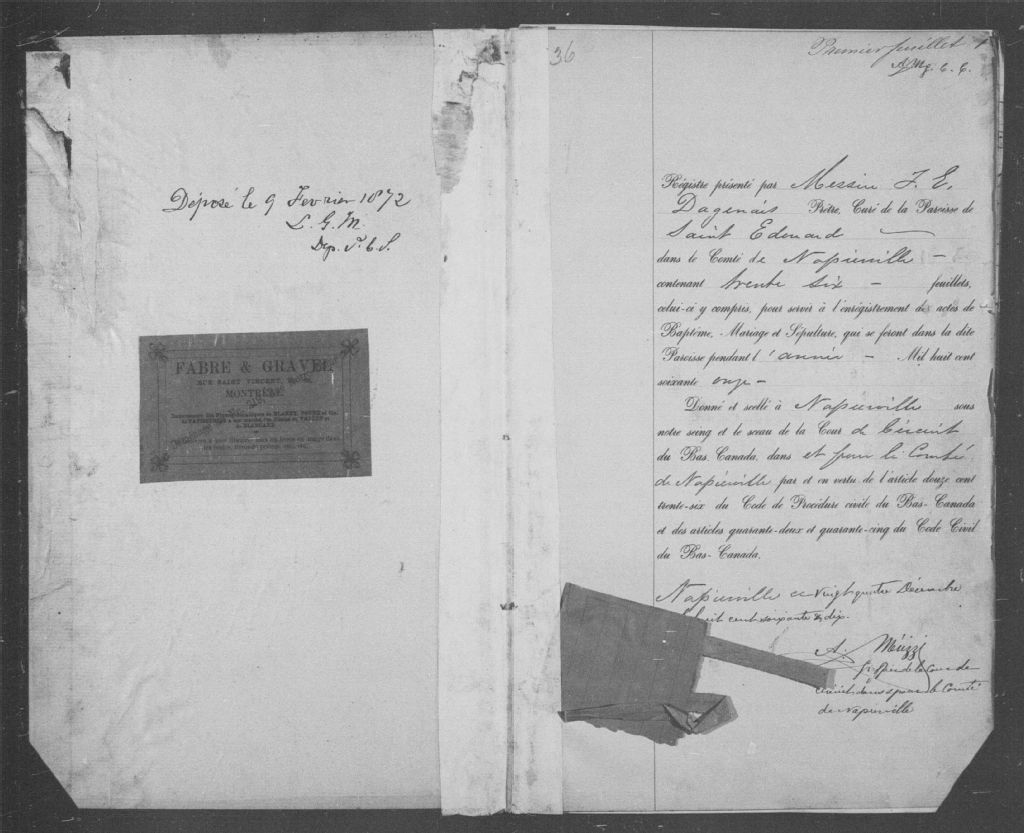 Déposé le 9 Fevrier 1872
L. G. M.
Dep. P. C. S.
FABRE & GRAVEL
RUE SAINT VINCENT,
MONTRÉAL
36
Premier feuillet 1
C. C.
Régistre présenté par Messire J. E.
Dagenais Prêtre, Curé de la Paroisse de
Saint Edouard —
dans le Comté de Napierville —
contenant trente six — feuillets,
celui-ci y compris, pour servir à l'enrégistrement des actes de
Baptême, Mariage et Sépulture, qui se feront dans la dite
Paroisse pendant l'année — Mil huit cent
soixante onze —
Donné et scellé à Napierville sous
notre seing et le sceau de la Cour de Circuit
du Bas-Canada, dans et pour le Comté
de Napierville par et en vertu de l'article douze cent
trente-six du Code de Procédure civile du Bas-Canada
et des articles quarante-deux et quarante-cinq du Code Civil
du Bas-Canada.
Napierville ce vingt quatre Décembre
huit cent soixante & dix.
A. Merizzi
Greffier de la Cour de
Circuit dans & pour le Comté
de Napierville